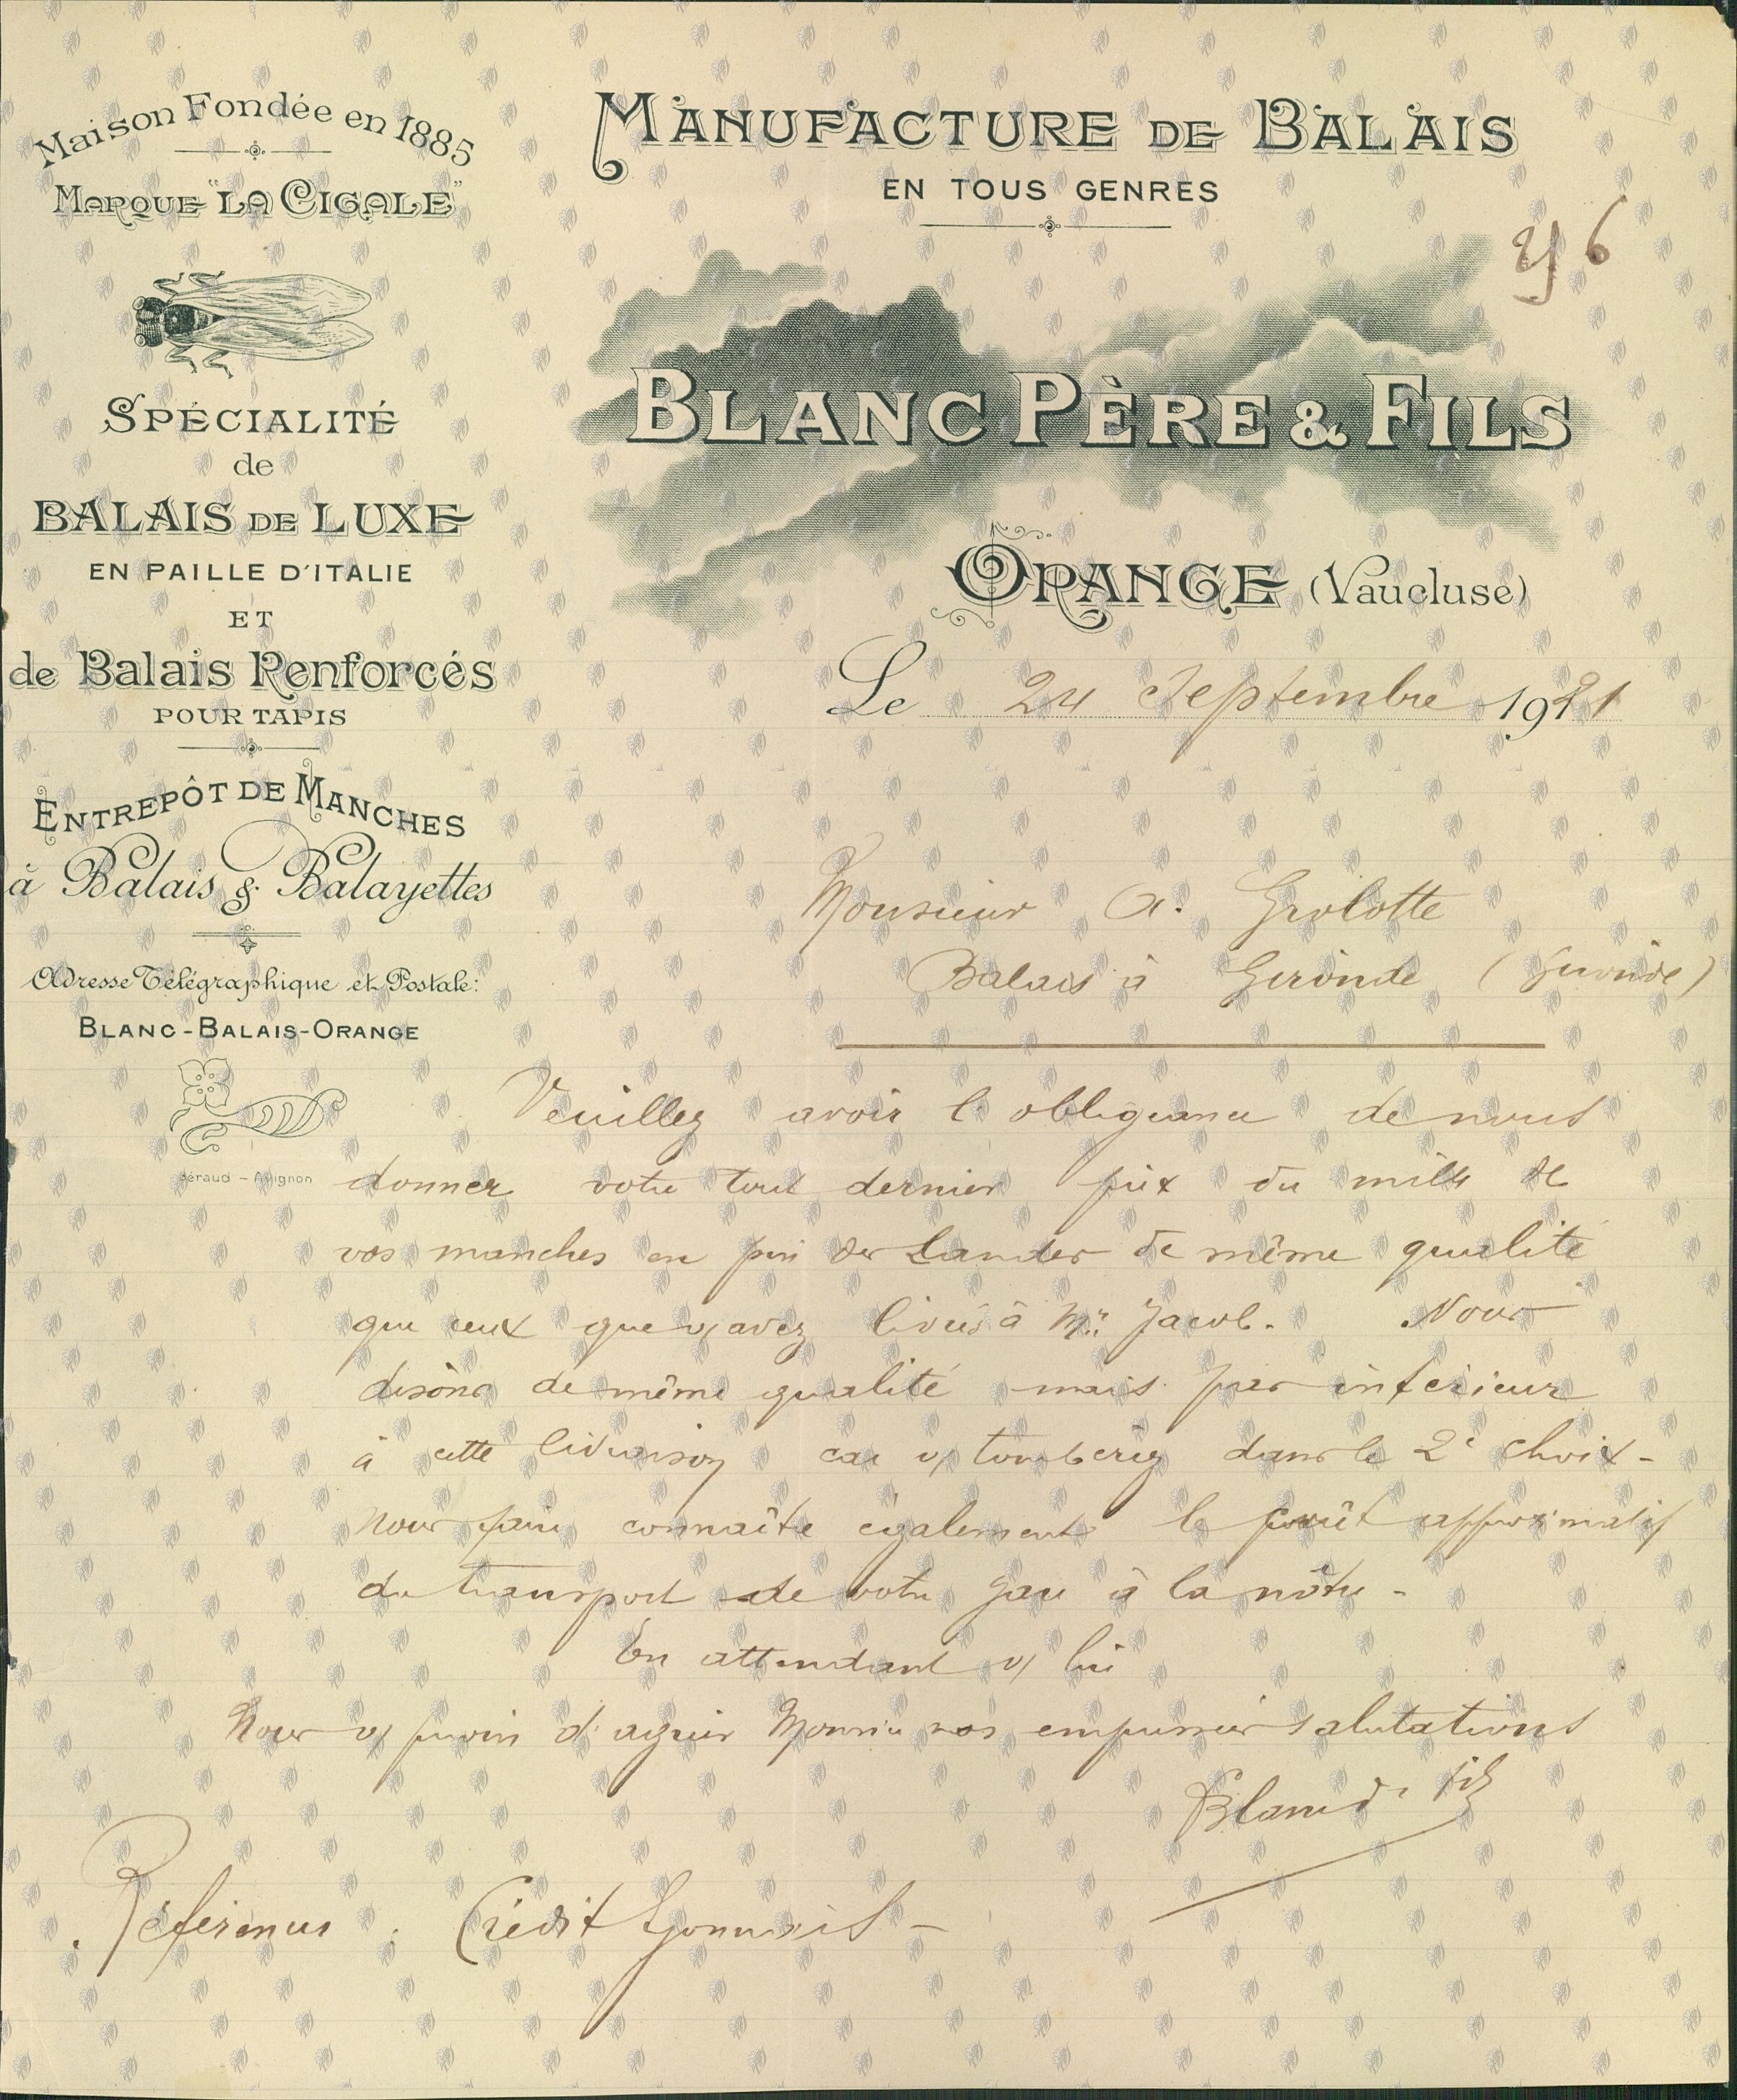 Maison Fondée en 1885
Marque "La Cigale"
Spécialité
de
Balais de Luxe
en paille d'Italie
et
de Balais Renforcés
pour tapis
Entrepôt de Manches
à Balais & Balayettes
Adresse Télégraphique et Postale:
Blanc-Balais-Orange
Béraud - Avignon
Manufacture de Balais
en tous genres
Blanc Père & Fils
Orange (Vaucluse)
Le 24 Septembre 1921
Monsieur A. Grolotte
Balais à Gironde (Gironde)
Veuillez avoir l'obligeance de nous
donner votre tout dernier prix du mille de
vos manches en pin des Landes de même qualité
que ceux que v/ avez livrés à Mr. Jacob. Nous
disons de même qualité mais pas inférieur
à cette livraison car v/ tomberiez dans le 2e choix -
Nous faire connaître également le coût approximatif
du transport de votre gare à la nôtre -
En attendant v/ lire
Nous v/ prions d'agréer Monsieur nos empressées salutations
Blanc & fils
Références : Crédit Lyonnais -